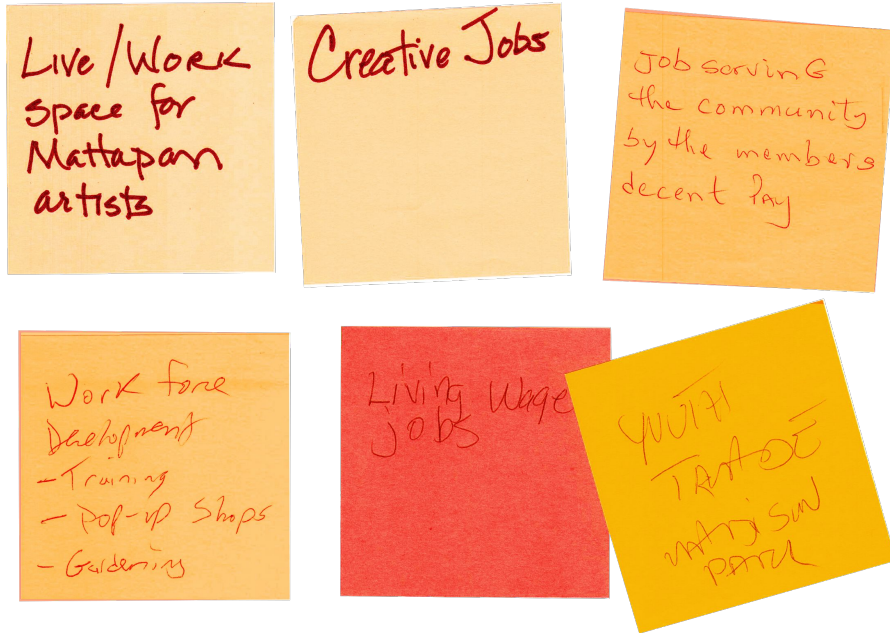 Live/Work
space for
Mattapan
artists
Creative Jobs
Job serving
the community
by the members
decent Pay
Work force
Development
- Training
- Pop-up Shops
- Gardening
Living Wage
jobs
YOUTH
TRADE
MADISON
PARK